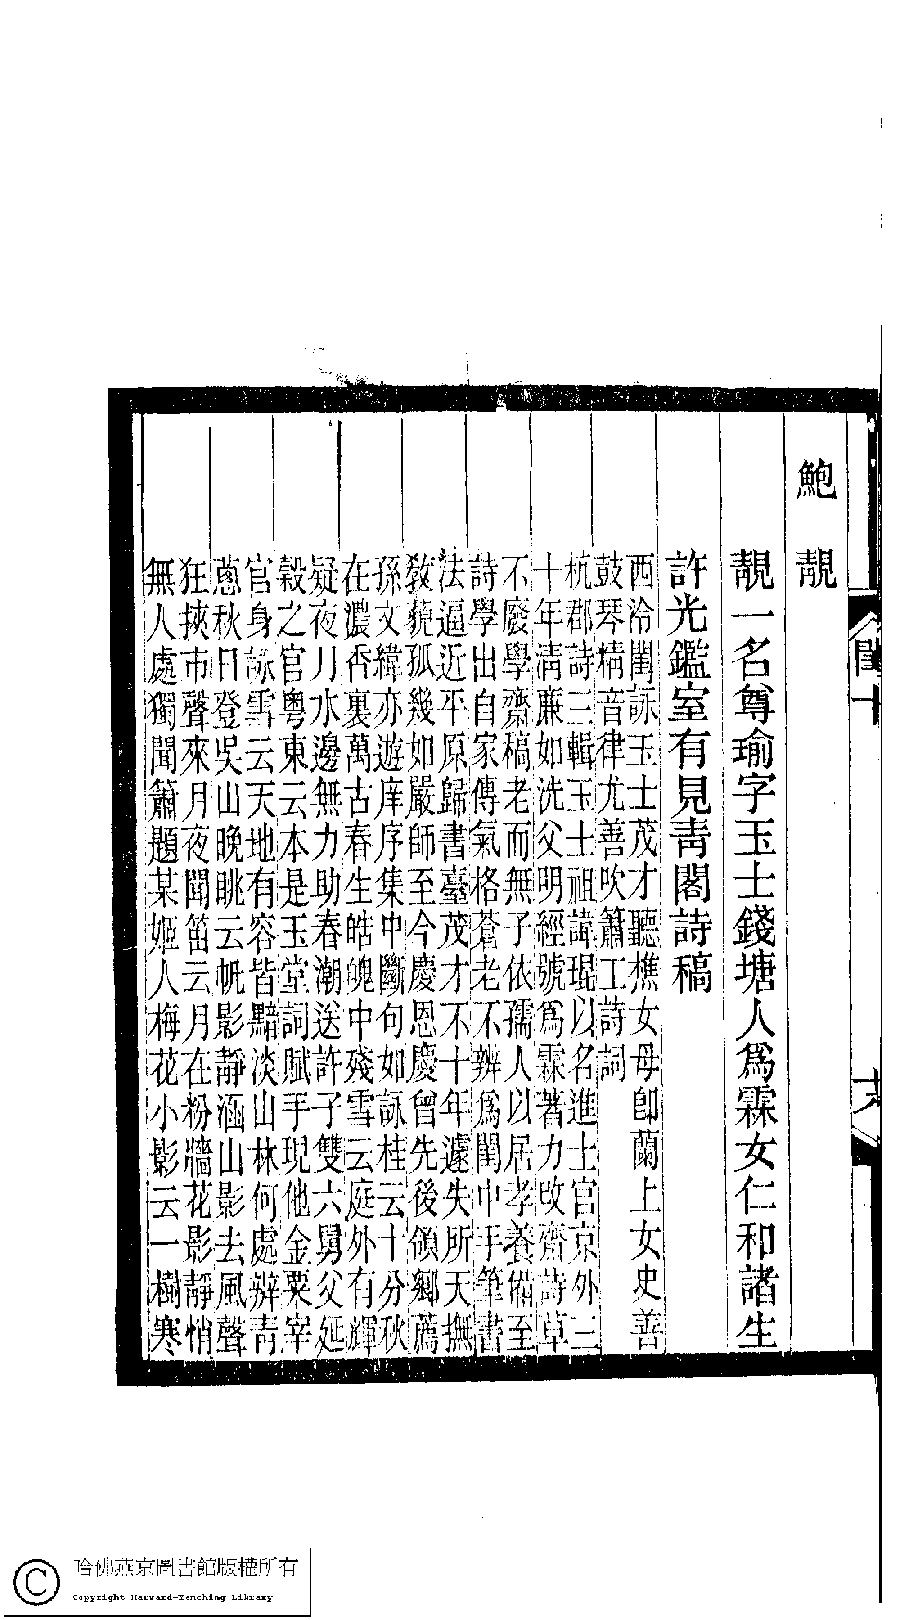 閨十
鮑靚
靚一名尊瑜字玉士錢塘人爲霖女仁和諸生
許光鑑室有見青閣詩稿
西泠閨詠玉士茂才聽樵女母卽蘭上女史善
鼓琴精音律尤善吹簫工詩詞
杭郡詩三輯玉士祖諱琨以名進士官京外三
十年淸廉如洗父明經號爲霖著力攻齋詩草
不廢學齋稿老而無子依孺人以居孝養備至
詩學出自家傳氣格蒼老不辨爲閨中手筆書
法逼近平原歸書臺茂才不十年遽失所天撫
敎藐孤幾如嚴師至今慶恩慶曾先後領鄉薦
孫文緯亦遊庠序集中斷句如詠桂云十分秋
在濃香裏萬古春生皓魄中殘雪云庭外有輝
疑夜月水邊無力助春潮送許子雙六舅父延
穀之官粵東云本是玉堂詞賦手現他金粟宰
官身詠雪云天地有容皆黯淡山林何處辨靑
蔥秋日登吳山晚眺云帆影靜涵山影去風聲
狂挾市聲來月夜聞笛云月在粉牆花影靜悄
無人處獨聞簫題某姬人梅花小影云一樹寒
哈佛燕京圖書館版權所有
Copyright Harvard-Yenching Library